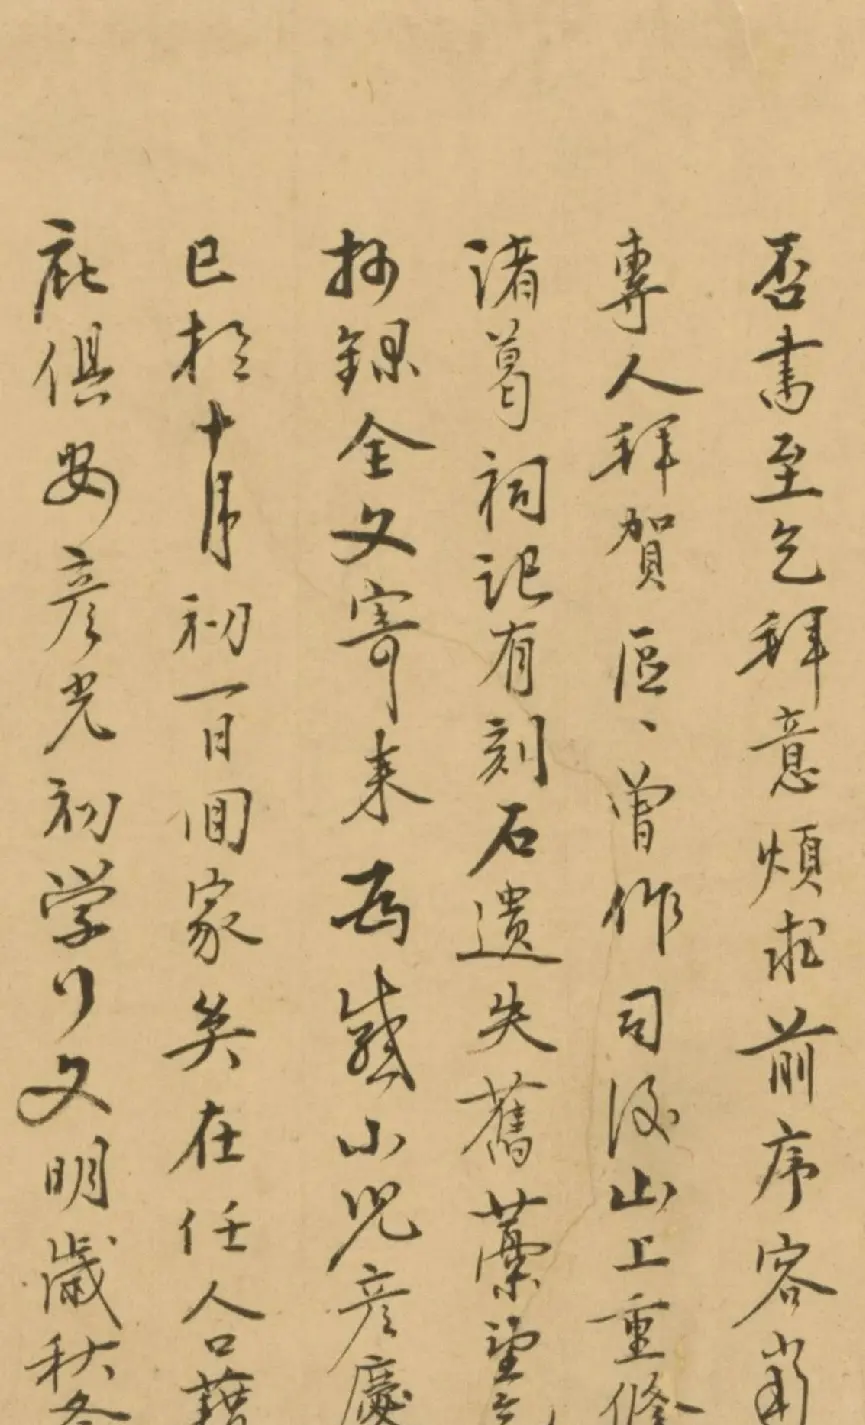 否書至乞拜意煩求前序容當
專人拜賀區〻曾作司後山上重脩
諸葛祠記有刻石遺失舊藁望乞
抄錄全文寄來爲感小兒彥慶
已於十月初一日回家矣在任人口藉
庇俱安彥光初學行文明歲秋冬